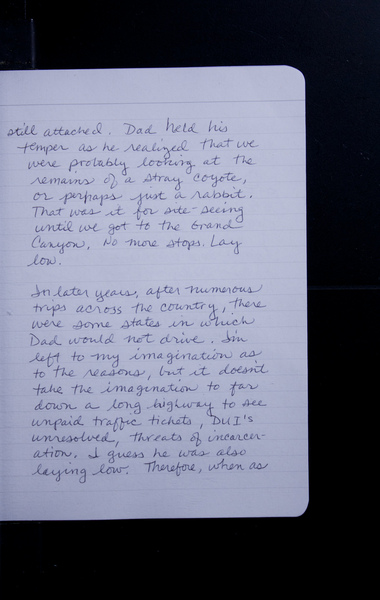 still attached. Dad held his
temper as he realized that we
were probably looking at the
remains of a stray coyote,
or perhaps just a rabbit.
That was it for site-seeing
until we got to the Grand
Canyon, No more stops. Lay
low.
In later years, after numerous
trips across the country, there
were some states in which
Dad would not drive. I'm
left to my imagination as
to the reasons, but it doesn't
take the imagination to far
down a long highway to see
unpaid traffic tickets, DUI's
unresolved, threats of incarcer-
ation. I guess he was also
laying low. Therefore, when as